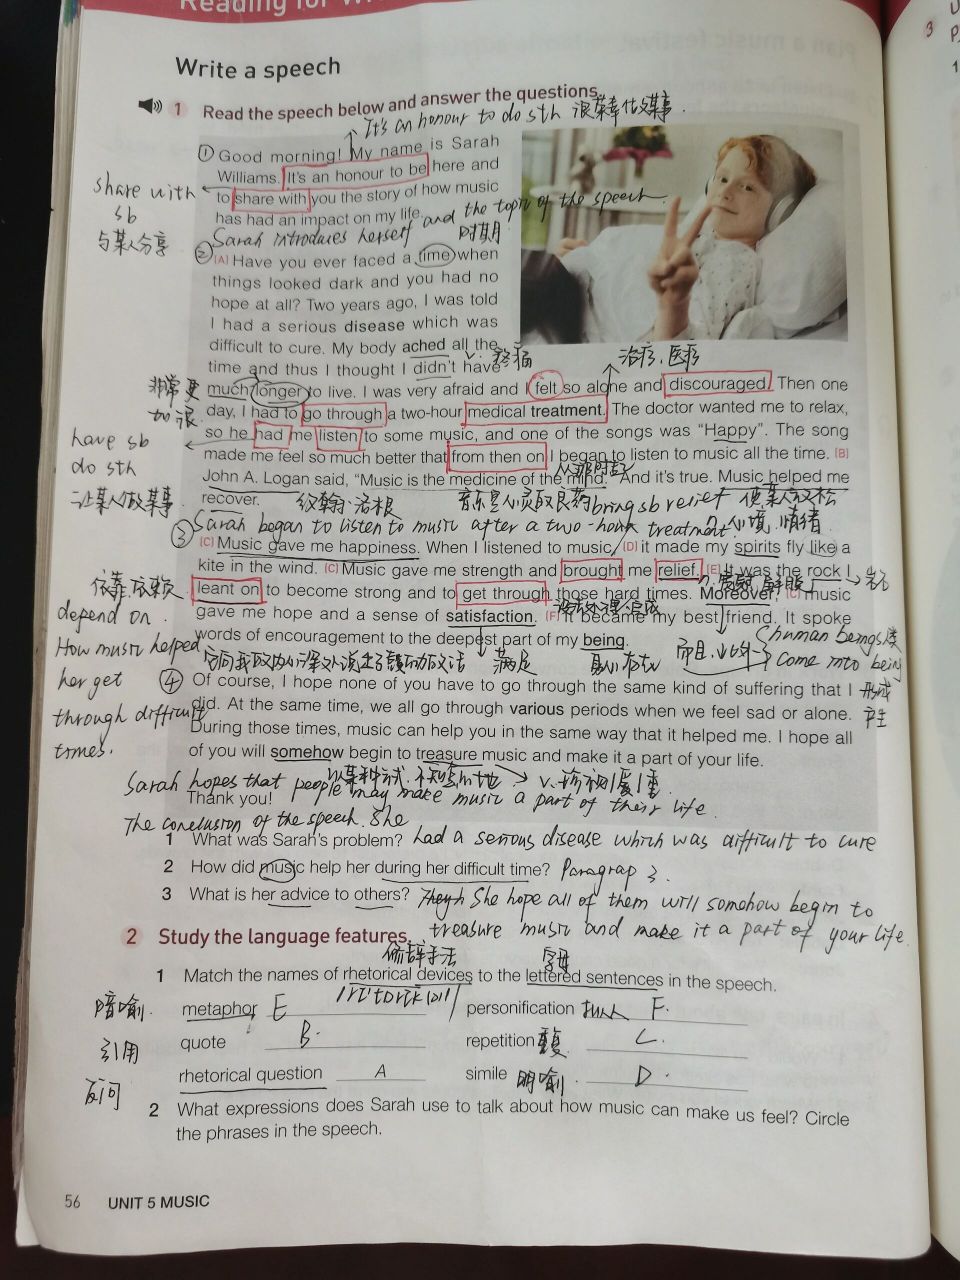 Reading for W
Write a speech
1 Read the speech below and answer the questions.
It's an honour to do sth 很荣幸做某事.
① Good morning! My name is Sarah
Williams. It's an honour to be here and
to share with you the story of how music
has had an impact on my life.
share with
sb
与某人分享
Sarah introduces herself and the topic of the speech.
时期
② [A] Have you ever faced a time when
things looked dark and you had no
hope at all? Two years ago, I was told
I had a serious disease which was
difficult to cure. My body ached all the
time and thus I thought I didn't have
v. 疼痛
治疗, 医疗
much longer to live. I was very afraid and I felt so alone and discouraged. Then one
day, I had to go through a two-hour medical treatment. The doctor wanted me to relax,
so he had me listen to some music, and one of the songs was "Happy". The song
made me feel so much better that from then on I began to listen to music all the time. [B]
John A. Logan said, "Music is the medicine of the mind." And it's true. Music helped me
recover.
非常更
have sb
do sth
让某人做某事
从那时起
约翰·洛根
音乐是心灵的良药
bring sb relief 使某人放松
Sarah began to listen to music after a two-hour treatment.
n. 心境, 情绪
③ [C] Music gave me happiness. When I listened to music, [D] it made my spirits fly like a
kite in the wind. [C] Music gave me strength and brought me relief. [E] It was the rock I
leant on to become strong and to get through those hard times. Moreover, [C] music
gave me hope and a sense of satisfaction. [F] It became my best friend. It spoke
words of encouragement to the deepest part of my being.
依靠, 依赖
depend on
How music helped
her get
through difficult
times.
满足
而且, 此外
human beings 人类
come into being
形成
产生
④ Of course, I hope none of you have to go through the same kind of suffering that I
did. At the same time, we all go through various periods when we feel sad or alone.
During those times, music can help you in the same way that it helped me. I hope all
of you will somehow begin to treasure music and make it a part of your life.
v. 珍视
Sarah hopes that people may make music a part of their life.
Thank you!
The conclusion of the speech. She
1 What was Sarah's problem? had a serious disease which was difficult to cure
2 How did music help her during her difficult time? Paragrap 3.
3 What is her advice to others? She hope all of them will somehow begin to
treasure music and make it a part of your life.
2 Study the language features.
修辞手法 字母
1 Match the names of rhetorical devices to the lettered sentences in the speech.
暗喻. metaphor E personification 拟人 F.
引用 quote B. repetition 重复 C.
反问 rhetorical question A simile 明喻. D.
2 What expressions does Sarah use to talk about how music can make us feel? Circle
the phrases in the speech.
56 UNIT 5 MUSIC
3